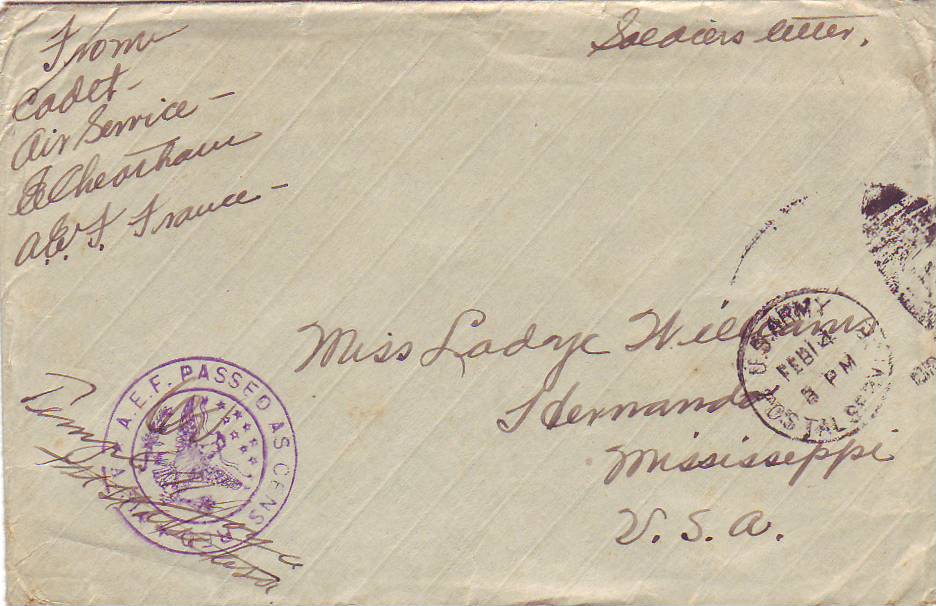 From
Cadet -
Air Service -
Cheatham
A.E.F. France -
Soldiers letter.
Miss Ladye Williams
Hernando
Mississippi
U.S.A.
U.S. ARMY POSTAL SERVICE
FEB 14
PM
A.E.F. PASSED AS CENS